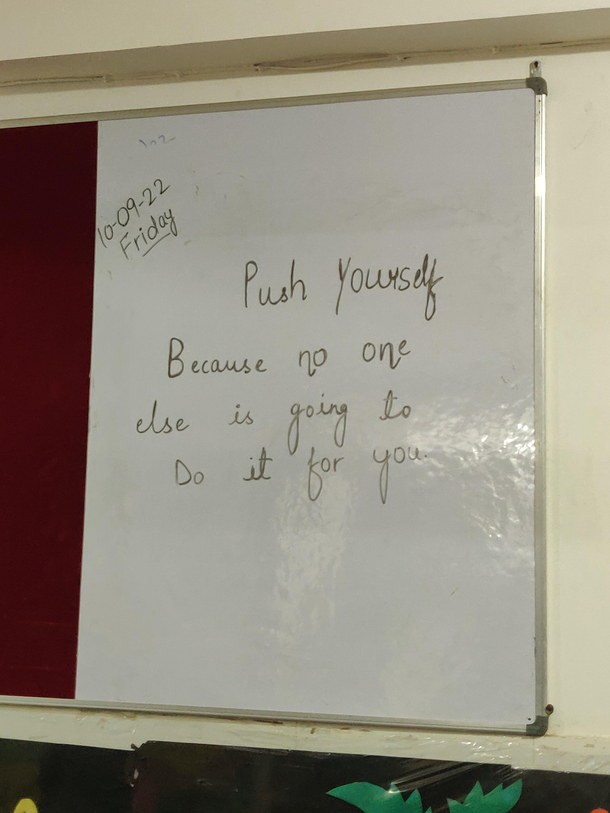 10-09-22
Friday
Push Yourself
Because no one
else is going to
Do it for you.